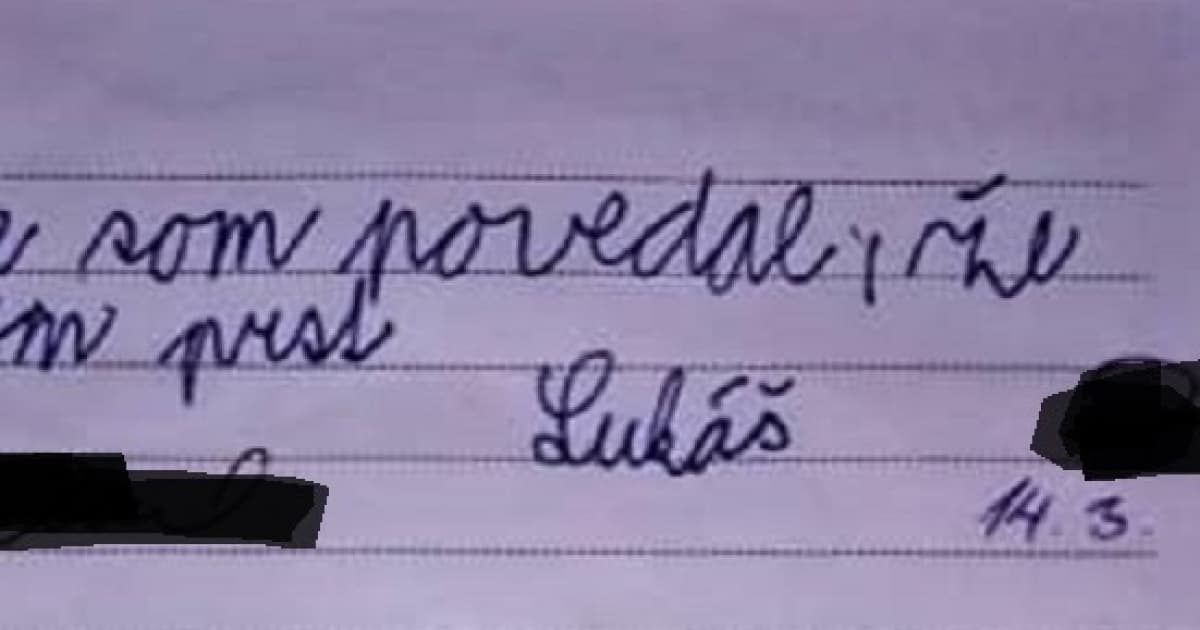 e som povedal, že
m prst
Lukáš
14. 3.